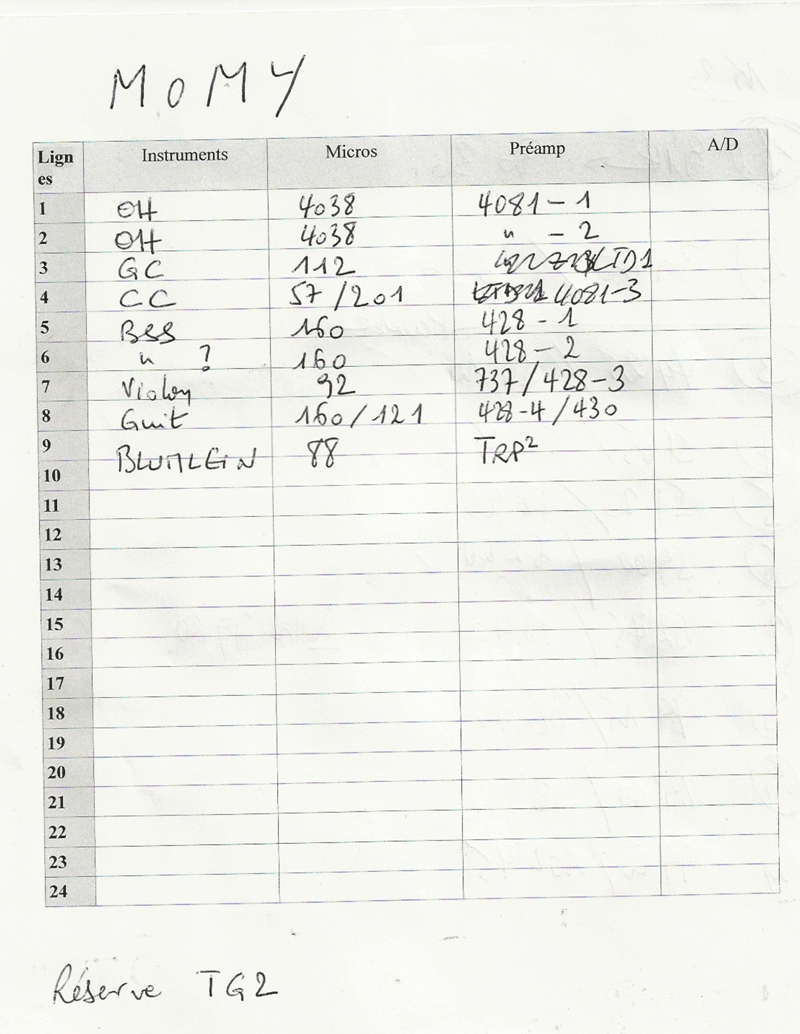 MOMY
Lignes Instruments Micros Préamp A/D
1 OH 4038 4081-1
2 OH 4038 " -2
3 GC 112 LTD1
4 CC 57/201 4081-3
5 BSS 160 428-1
6 " ? 160 428-2
7 Violon 92 737/428-3
8 Guit 160/121 428-4/430
9 BLUMLEIN 88 TRP²
10
11
12
13
14
15
16
17
18
19
20
21
22
23
24
Réserve TG2